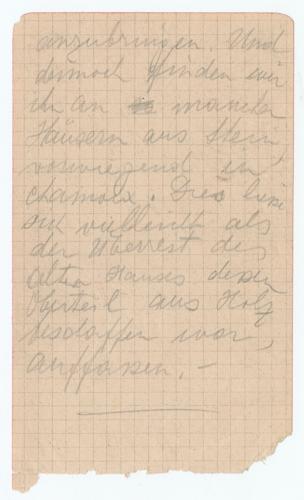 anzubringen. Und
dennoch finden wir
ihn an manchen
Häusern aus Stein,
vorwiegend in
Chamoix. Dies liesse
sich vielleicht als
der Überrest des
alten Hauses dessen
Oberteil aus Holz
beschaffen war,
auffassen. –